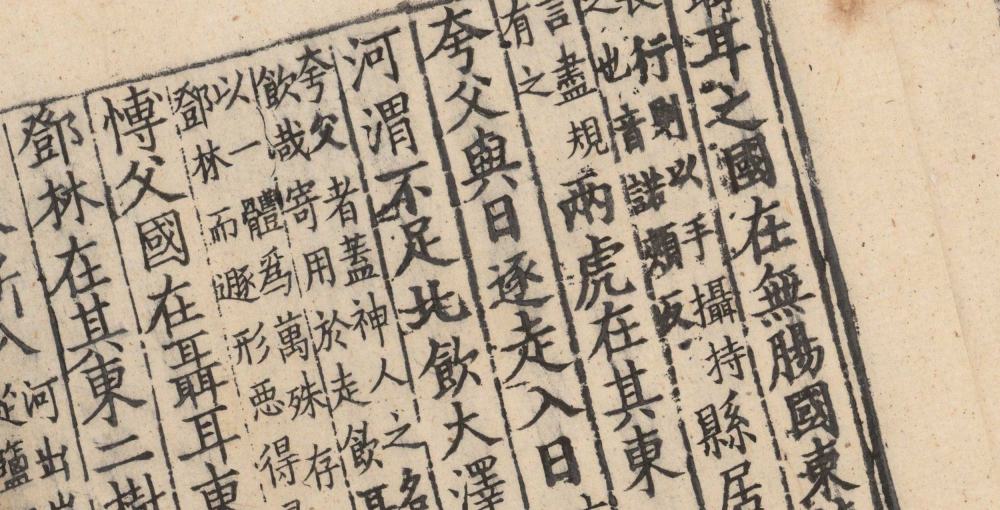 耳之國在無腸國東
行則以手攝持
之也音諾頰反
縣居
言盡規
有之
兩虎在其東
夸父與日逐走入日
河渭不足北飲大澤
夸父者蓋神人之名
飲哉寄用於走飲耳
以一體爲萬殊存
鄧林而遯形惡得
博父國在聶耳東
鄧林在其東二樹
所入
河出
從鹽